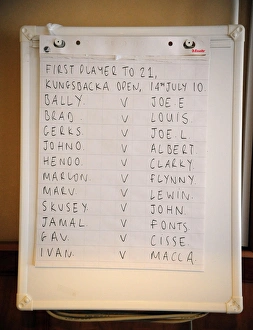 FIRST PLAYER TO 21,
KUNGSBACKA OPEN, 14TH JULY 10
BALLY V JOE E
BRAD V LOUIS
GERKS V JOE L
JOHNO V ALBERT
HENDO V CLARKY
MARLON V FLYNNY
MARV V LEWIN
SKUSEY V JOHN
JAMAL V FONTS
GAV V CISSE
IVAN V MACCA